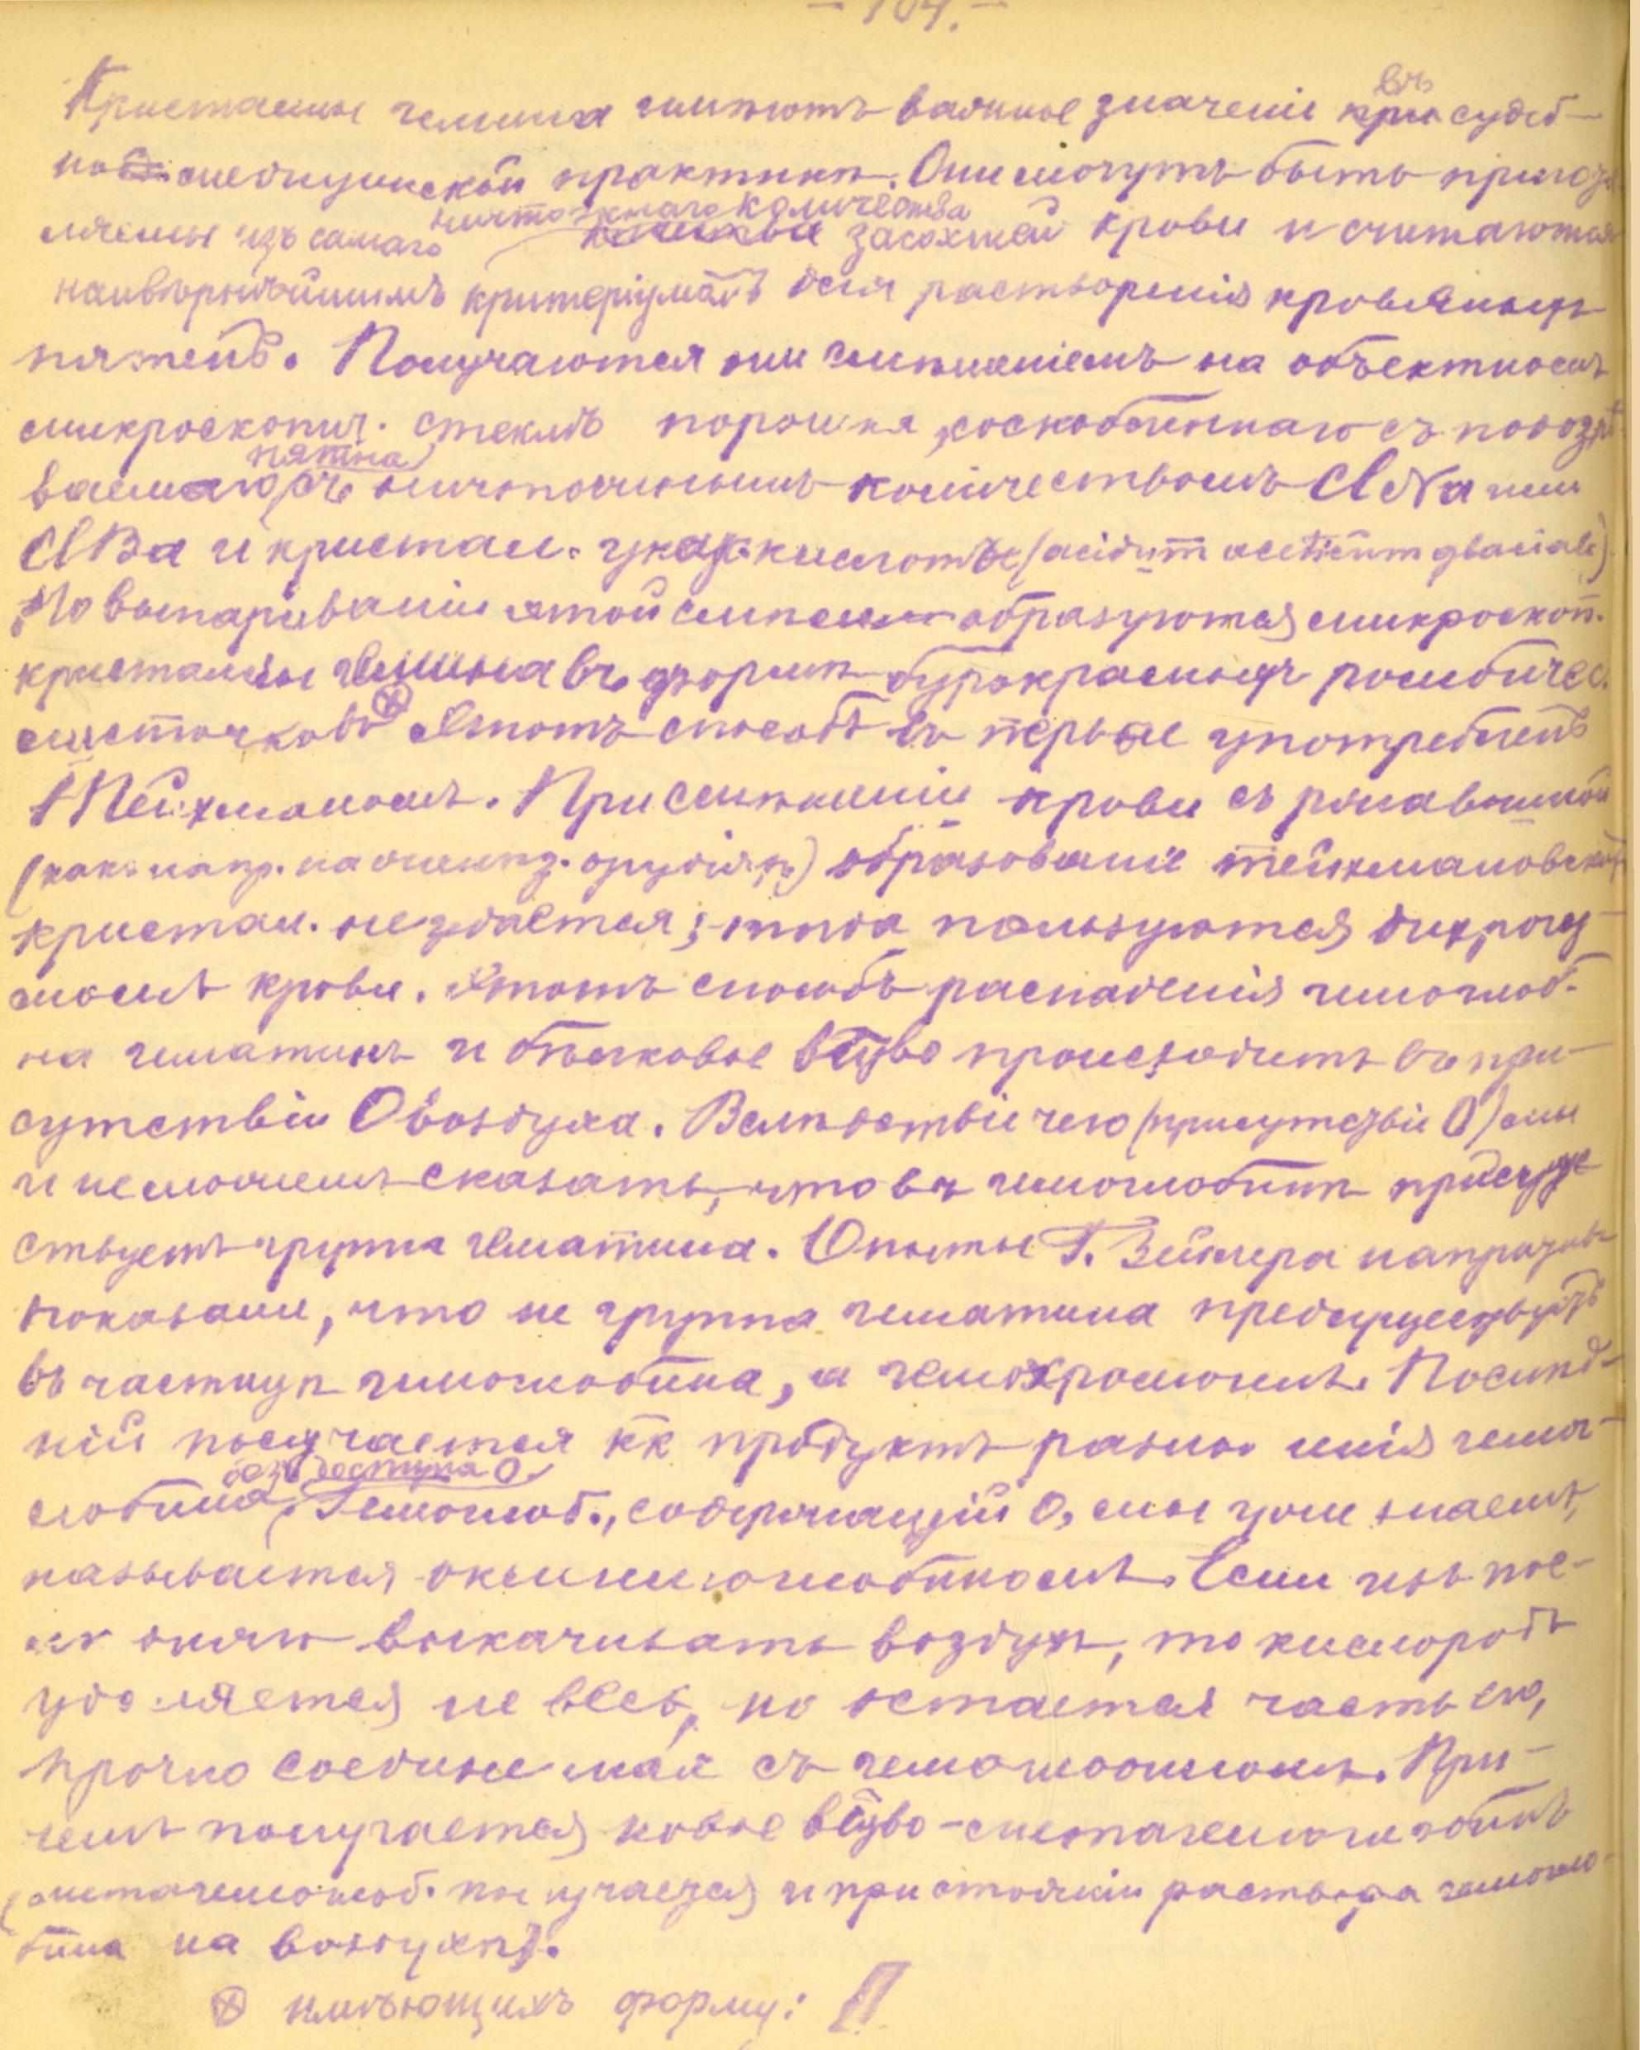 — 104. —
Кристаллы гемина имѣютъ важное значеніе въ судеб-
но-медицинской практикѣ. Они могутъ быть приготов-
ляемы изъ самаго ничтожнаго количества засохшей крови и считаются
наивѣрнѣйшимъ критеріумомъ для растворенія кровяныхъ
пятенъ. Получаются они смѣшеніемъ на объектномъ
микроскопич. стеклѣ порошка, соскобленнаго съ подозрѣ-
ваемаго пятна съ ничтожнымъ количествомъ ClNa или
ClBa и кристал. укс. кислотѣ (acidum aceticum glaciale).
По выпариваніи этой смѣси образуются микроскоп.
кристаллы гемина въ формѣ бурокрасныхъ ромбичес.
листочковъ ⊗ Этотъ способъ въ первые употребленъ
Тейхманомъ. При смѣшеніи крови съ ржавчиной
(какъ напр. на желѣз. орудіяхъ) образованіе тейхмановскихъ
кристал. не удается; тогда пользуются
крови. Этотъ способъ распаденія гемоглоб.
на гематинъ и бѣлковое в-тво происходитъ въ при-
сутствіи О воздуха. Вслѣдствіе чего (присутствіе О) мы
и не можемъ сказать, что въ гемоглобинѣ предсуще-
ствуетъ группа гематина. Опыты Г. Зейлера напримѣръ
показали, что не группа гематина предсуществуетъ
въ частицѣ гемоглобина, а гемохромогенъ. Послѣд-
ній получается кк продуктъ разложенія гемо-
глобина безъ доступа О. Гемоглоб., содержащій О, мы уже знаемъ,
называется оксигемоглобиномъ. Если изъ
него выкачивать воздухъ, то кислородъ
удаляется не весь, но остается часть его,
прочно соединенная съ гемоглобиномъ. При-
чемъ получается новое в-тво - метагемоглобинъ
(метагемоглоб. получается и при стояніи раствора гемогло-
бина на воздухѣ).
⊗ имѣющихъ форму: